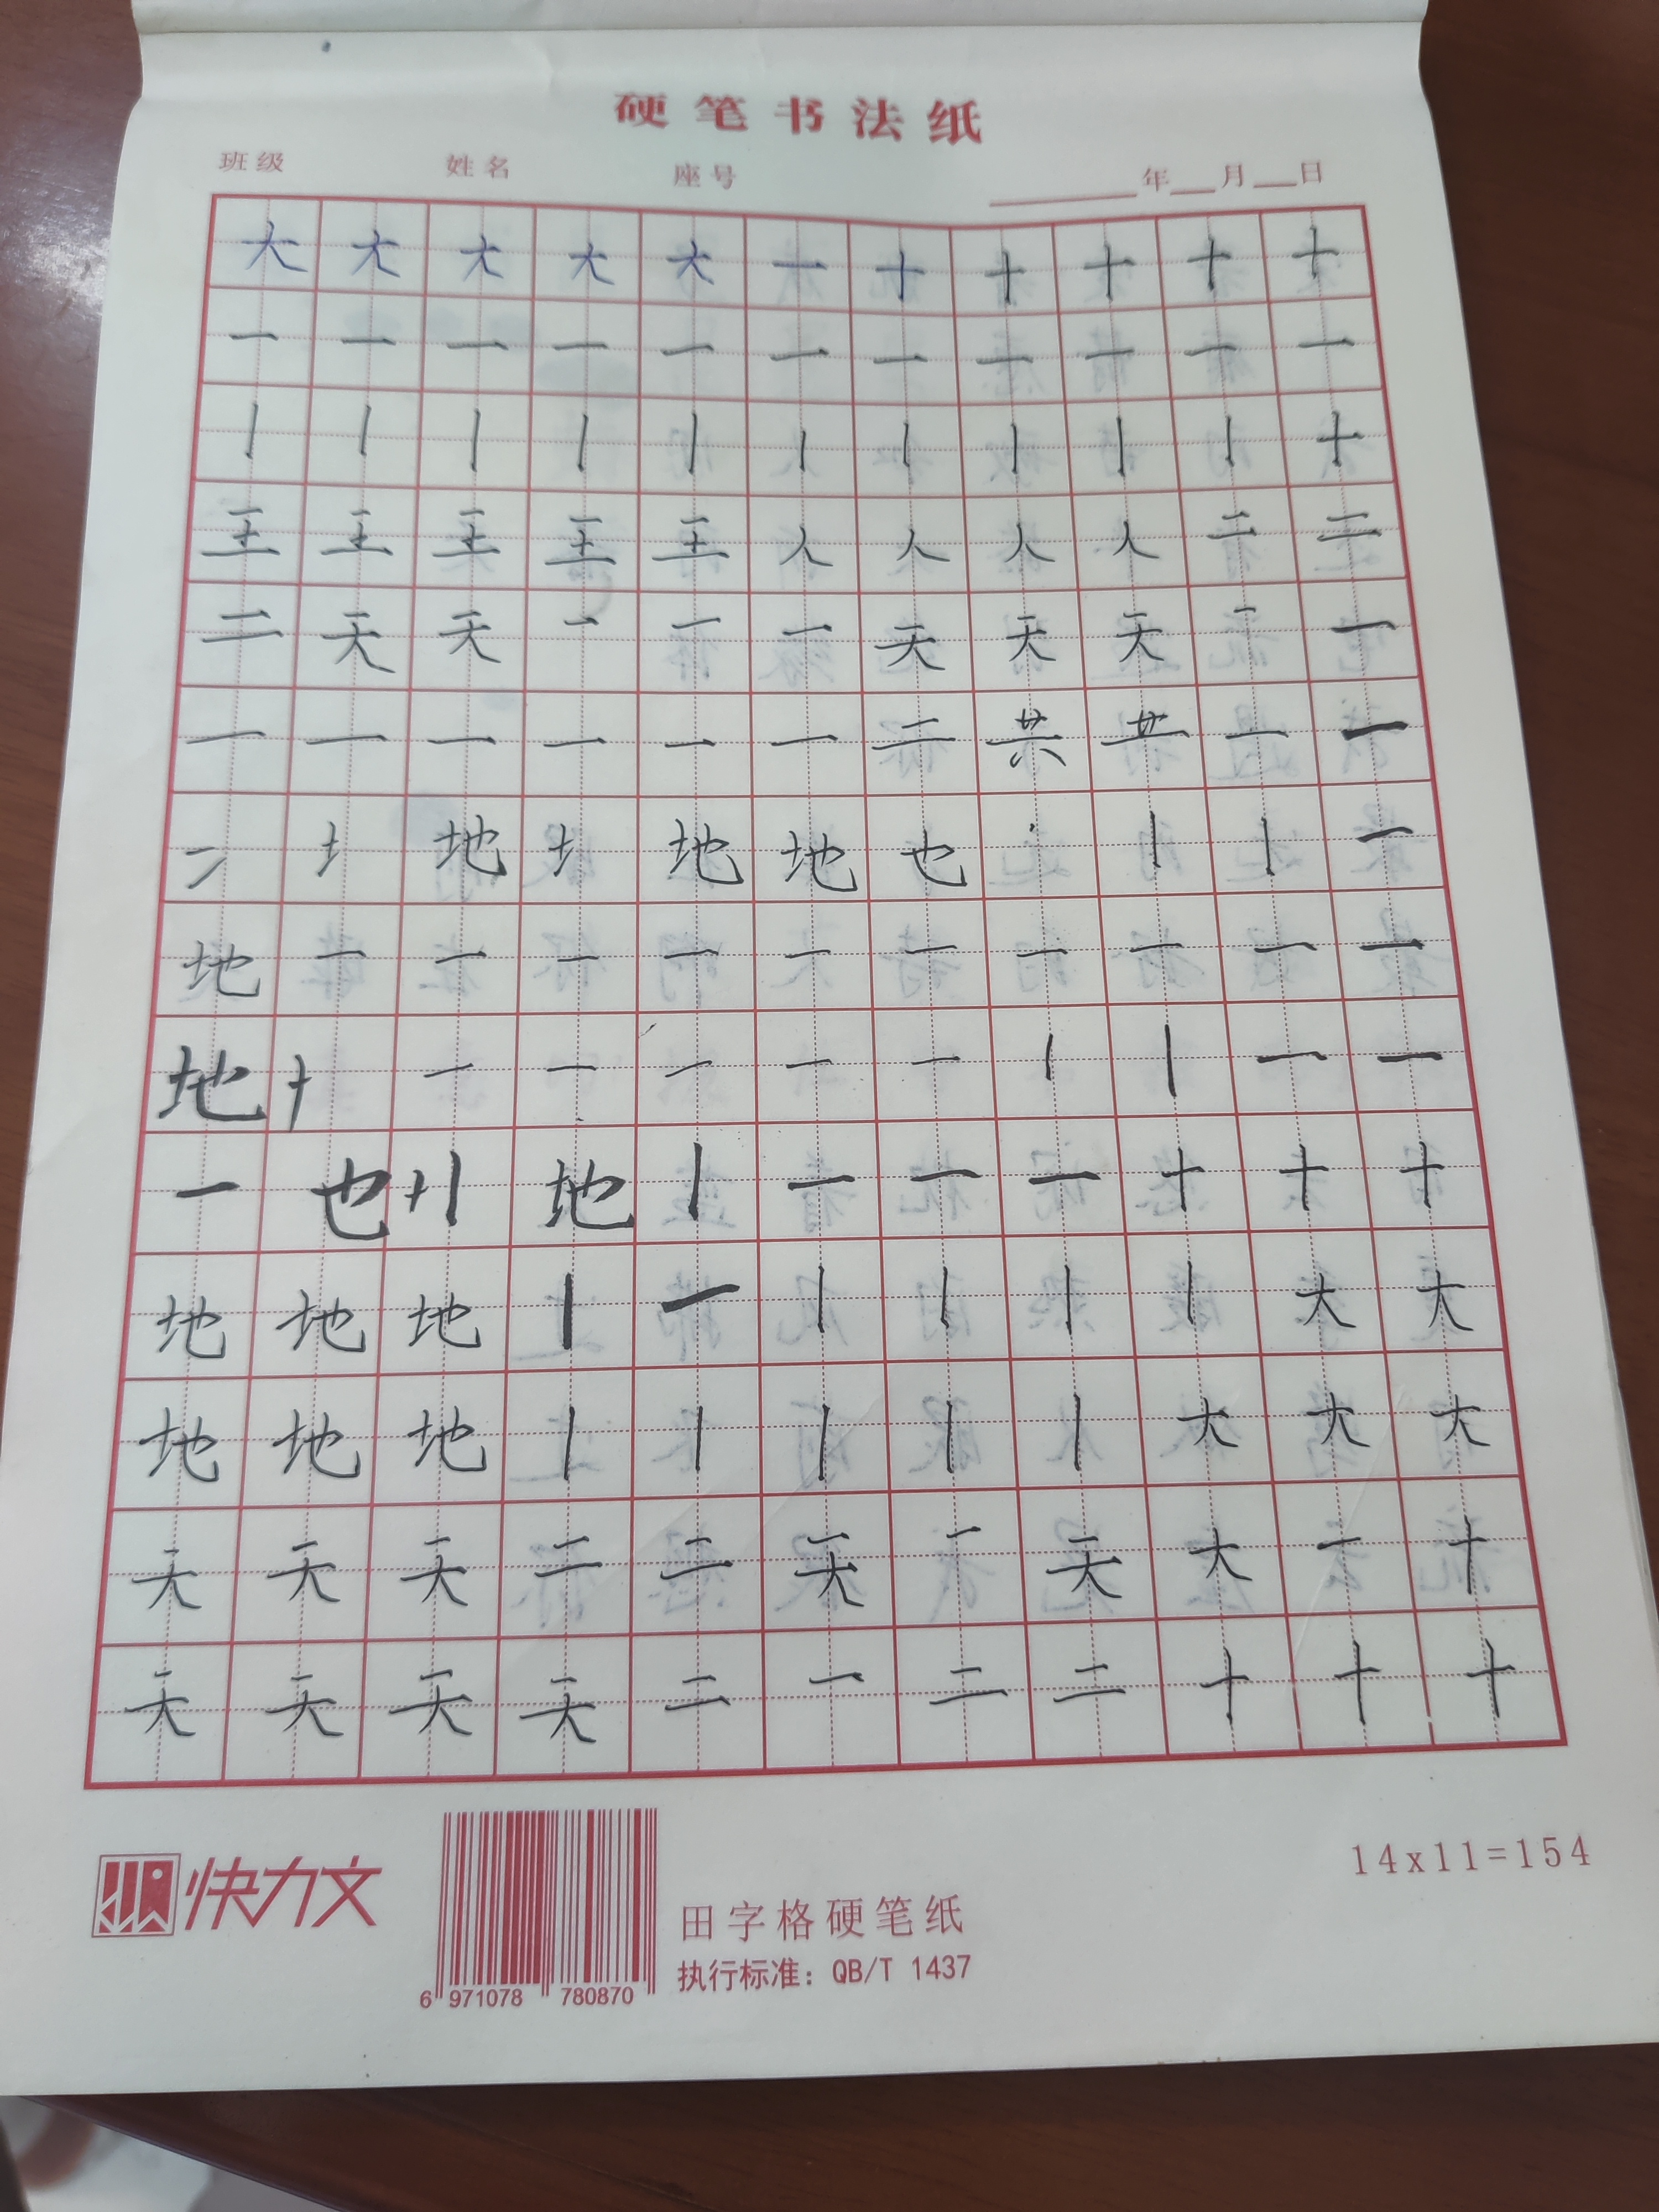 硬笔书法纸
班级 姓名 座号 年 月 日
大 大 大 大 大 一 十 十 十 十 十
一 一 一 一 一 一 一 一 一 一 一
丨 丨 丨 丨 丨 丨 丨 丨 丨 丨 十
主 主 主 主 主 人 人 人 人 二 二
二 天 天 一 一 一 天 天 天 一 一
一 一 一 一 一 一 二 共 一 一
地 地 地 也 丨 丨 一
地 一 一 一 一 一 一 一 一 一 一
地 一 一 一 一 一 丨 丨 一 一
一 也 地 丨 一 一 一 十 十 十
地 地 地 丨 一 丨 丨 丨 丨 大 大
地 地 地 丨 丨 丨 丨 丨 大 大 大
天 天 天 二 二 天 一 天 大 一 十
天 天 天 天 二 一 二 二 十 十 十
快力文
6 971078 780870
田字格硬笔纸
执行标准：QB/T 1437
14x11=154